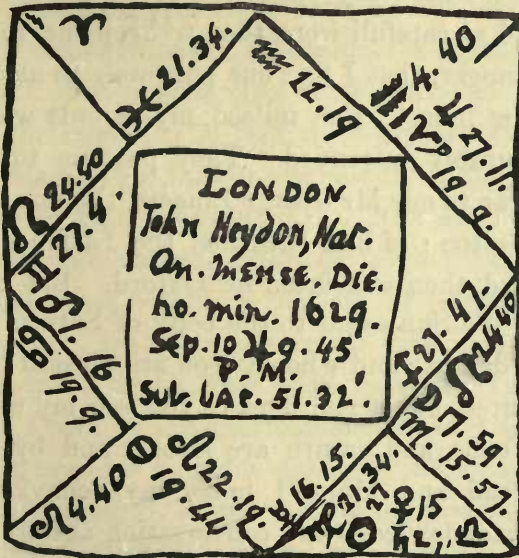 ♈
♓ 21.34.
♒ 22.19
4. 40
♑ ♃ 27.11.
19. 9.
☊ 24.40
♊ 27.4.
♂ 1. 16
♋ 19.9.
LONDON
John Heydon, Nat.
An. MENSE. Die.
ho. min. 1629.
Sep. 10 ♃ 9. 45
P. M.
Sub. LAP. 51.32'.
27. 47.
24 40
☽ 7. 59.
♏. 15. 57.
♌ 4.40
19
44
♌ 22.19.
16.15.
21. 34.
27
☉ ♀ 15
♄ 2 ♎